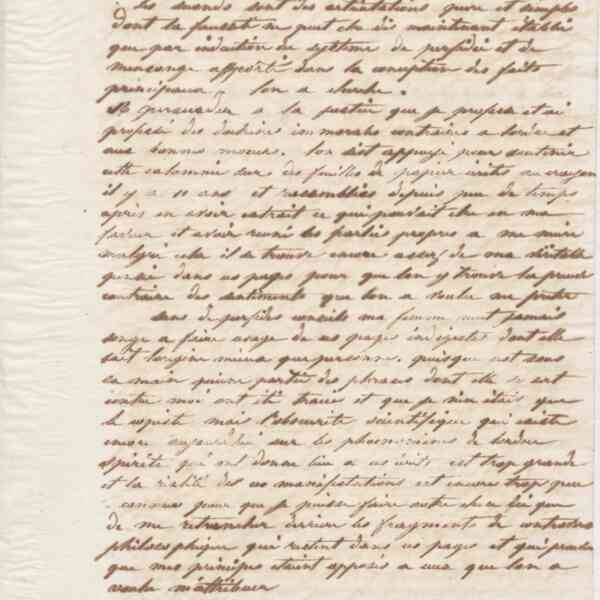 les seconds sont des articulations pure et simples
dont la fausseté ne peut etre dis maintenant établi
que par induction du système de perfidie et de
mensonge apporté dans la conception des faits
principaux. lon a cherché
A persuader a la justice que je professe et ai
professe des doctrines immorales contraires a lordre et
aux bonnes moeurs. lon sest appuyé pour soutenir
cette calomnie sur des feuilles de papier écrites au crayon
il y a 10 ans et rassemblées depuis peu de temps
après en avoir extrait ce qui pouvait etre en ma
faveur et avoir reuni les parties propres a me nuire
malgré cela il se trouve encore assez de ma véritable
pensée dans ces pages pour que lon y trouve la preuve
contraire des sentiments que lon a voulu me preter
sans de perfides conseils ma femme neut jamais
songe a faire usage de ces pages indigestes dont elle
sait lorigine mieux que personne. puisque cest sous
sa main quune partie des phrases dont elle se sert
contre moi ont été tracé et que je nen étais que
le copiste mais l'obscurité scientifique qui existe
encore aujourdhui sur les phenomenes de lordre
spirite qui ont donne lieu a ces écrits est trop grande
et la réalité des ces manifestations est encore trop peu
connues pour que je puisse faire autre chose que
de me retrancher derriere les fragments de
philosophique qui restent dans ces pages et qui
que mes principes etaient opposés a ceux que lon a
voulu m'attribuer